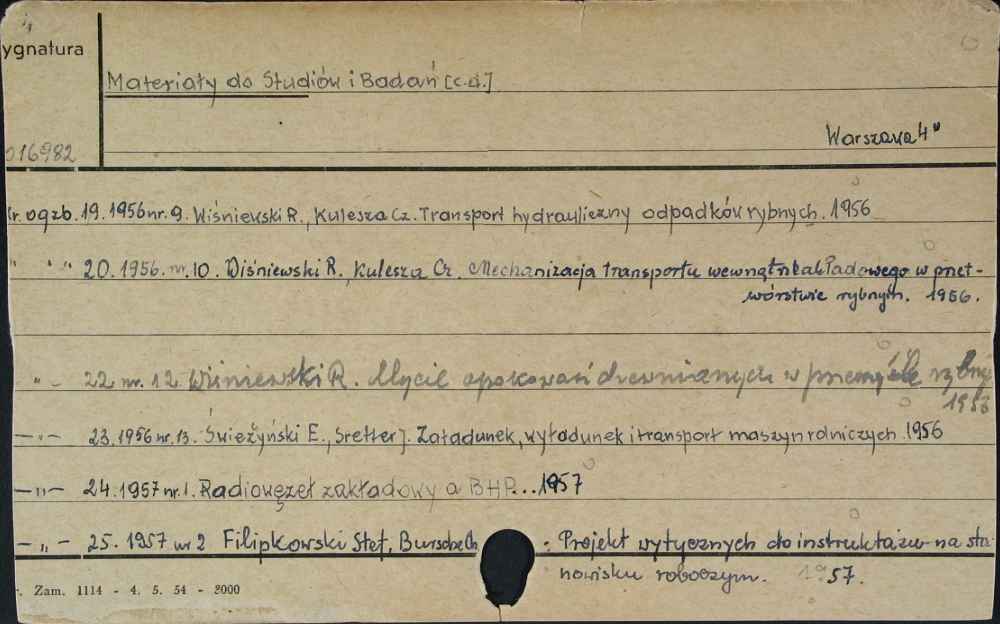 ygnatura
Materiały do Studiów i Badań [c.d.]
Warszawa 4°
016982
og.zb. 19. 1956 nr. 9. Wiśniewski R., Kulesza Cz. Transport hydrauliczny odpadków rybnych. 1956
" " " 20. 1956. nr. 10. Wiśniewski R., Kulesza Cz. Mechanizacja transportu wewnątrzzakładowego w przet-
wórstwie rybnym. 1956.
" - 22 nr. 12 Wiśniewski R. Mycie opakowań drewnianych w przemyśle rybny
1956
- " - 23. 1956 nr. 13. Świeżyński E., Sretter J. Załadunek, wyładunek i transport maszyn rolniczych. 1956
- " - 24. 1957 nr. 1. Radiowęzeł zakładowy a BHP... 1957
- " - 25. 1957 nr 2 Filipkowski Stef., Bursche Ch : Projekt wytycznych do instruktażu na sta-
nowisku roboczym. 1957.
Zam. 1114 - 4. 5. 54 - 2000